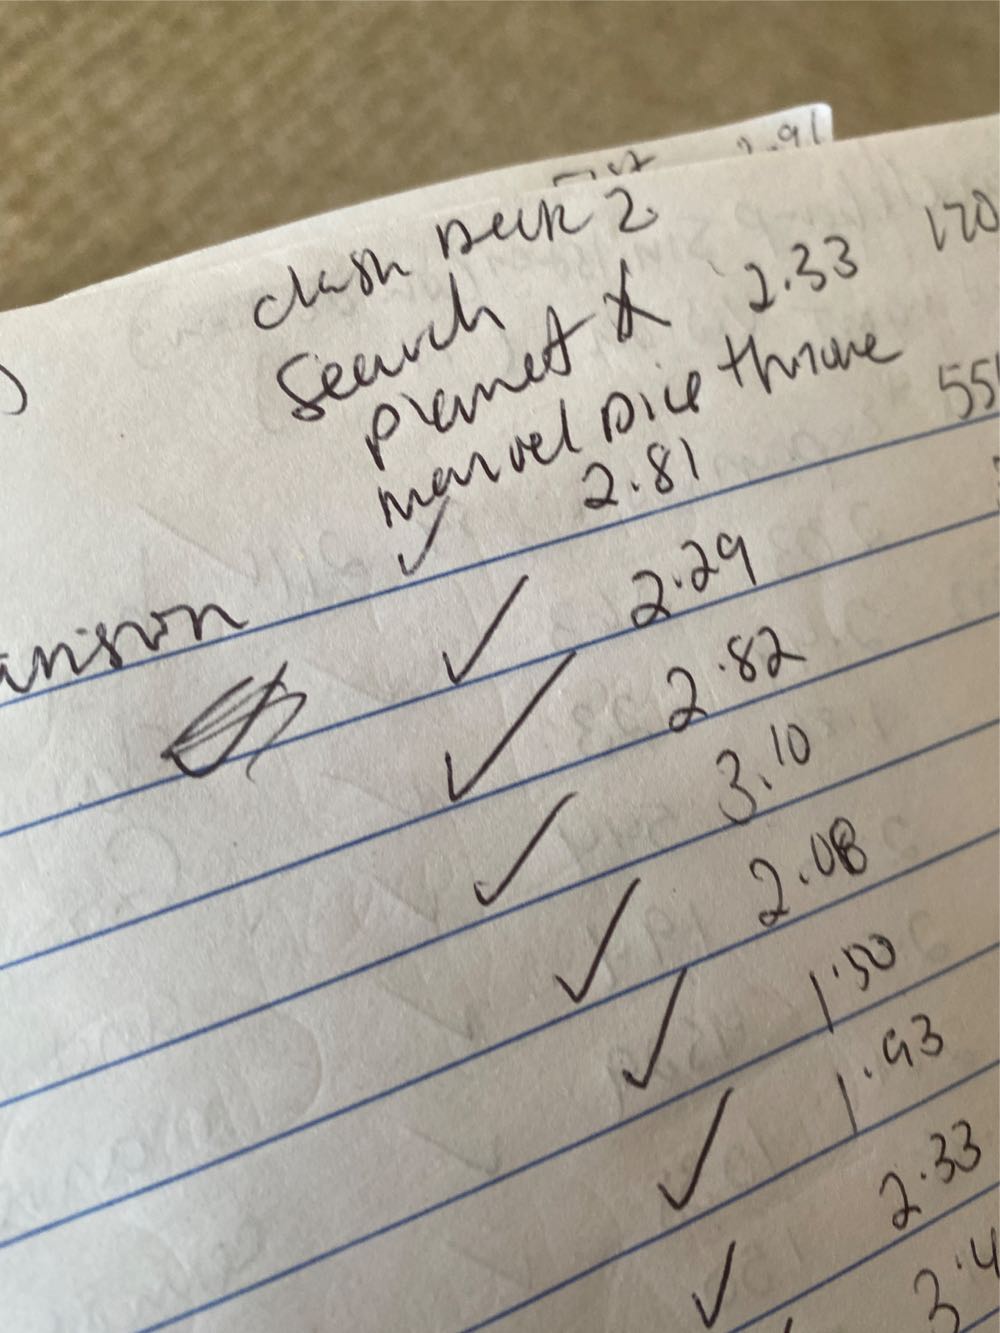 2.91
clash Deck 2
Search
Planet X 2.33 170
marvel Dice throne
✓ 2.81 55
anison ✓ 2.29
✓ 2.82
✓ 3.10
✓ 2.08
✓ 1.50
✓ 1.93
✓ 2.33
3.4